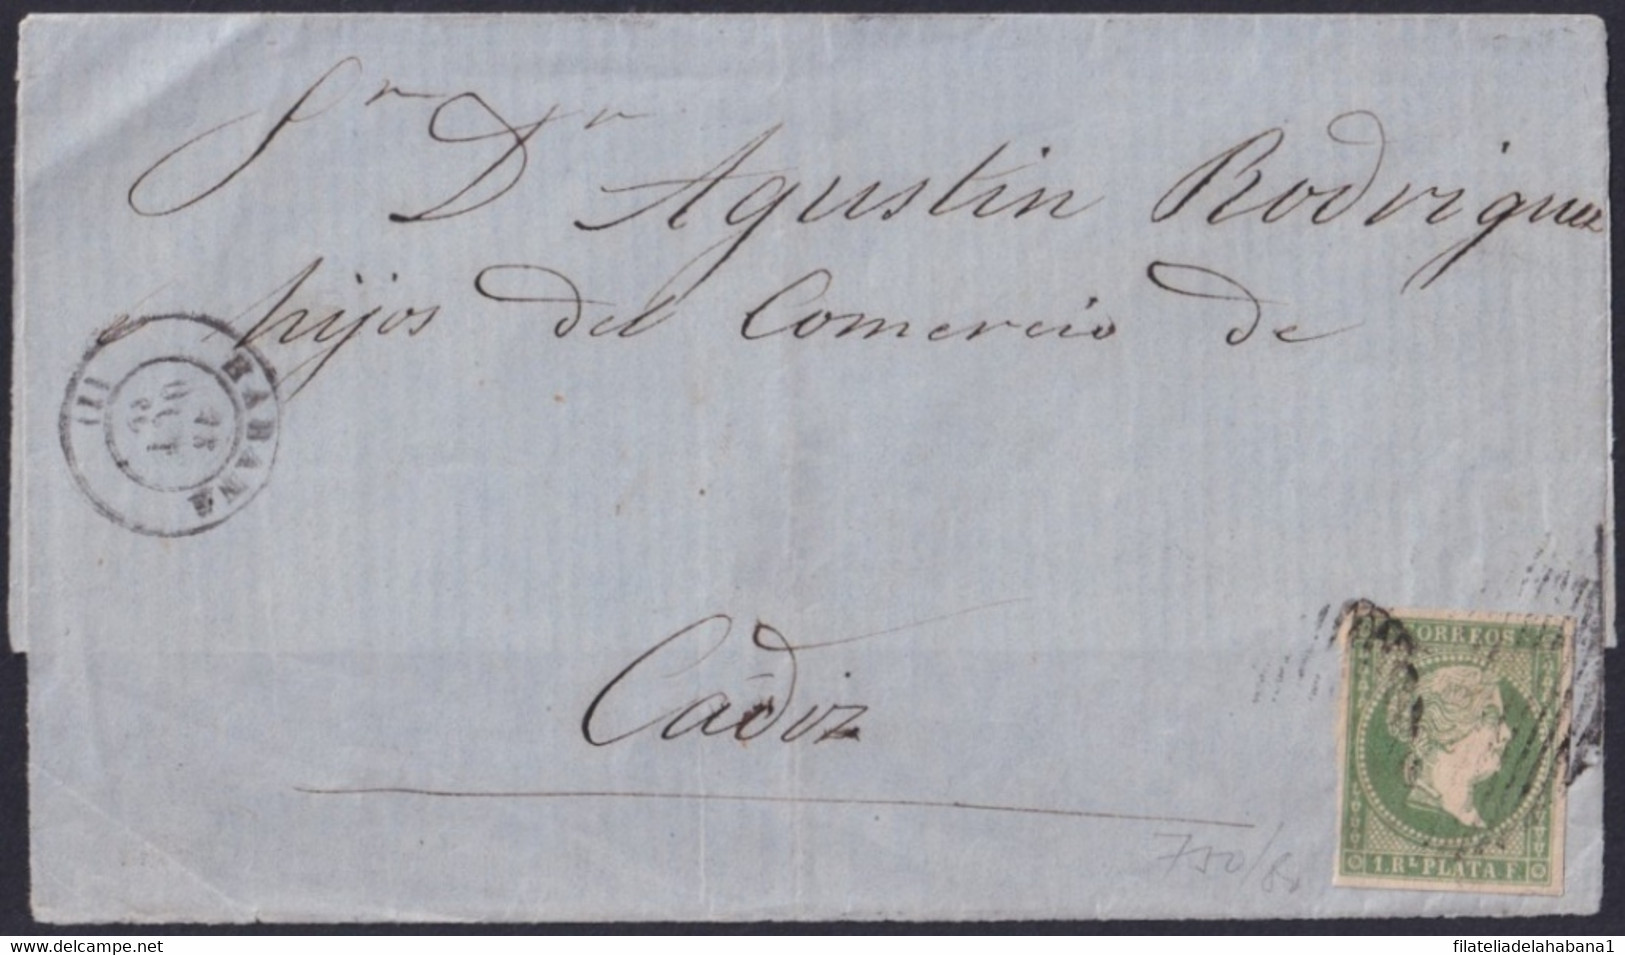 Sr Dn Agustin Rodriguez
e hijos del Comercio de
Cadiz
HABANA
18
OCT
(1)
CORREOS
1.RL PLATA.F.
750/
delcampe.net
filateliadelahabana1